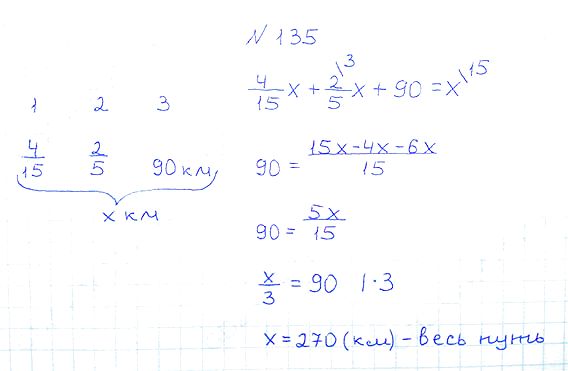 N 135
1 2 3
4/15 2/5 90 км
x км
4/15 x + 2/5 \3 x + 90 = x \15
90 = (15x - 4x - 6x)/15
90 = 5x/15
x/3 = 90 | · 3
x = 270 (км) - весь путь